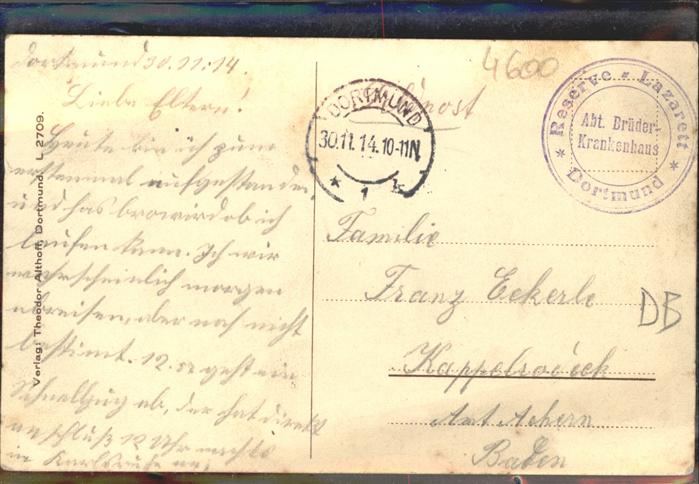 Dortmund 30.11.14.
Liebe Eltern!
Heute bin ich zum
erstenmal aufgestanden
und hab browird ob ich
laufen kann. Ich wir
wahrscheinlich morgen
abreisen, aber noch nicht
bestimmt. 12.52 geht ein
Schnellzug ab, der hat direkt
anschluß 12 Uhr nachts
in Karlsruhe an.
Verlag: Theodor Althoff, Dortmund. L. 2709.
Feldpost
DORTMUND
30.11.14.10-11N
* 1 k
4600
Reserve - Lazarett
* Dortmund *
Abt. Brüder-
Krankenhaus
Familie
Franz Eckerle
Kappelrodeck
Amt Achern
Baden
DB